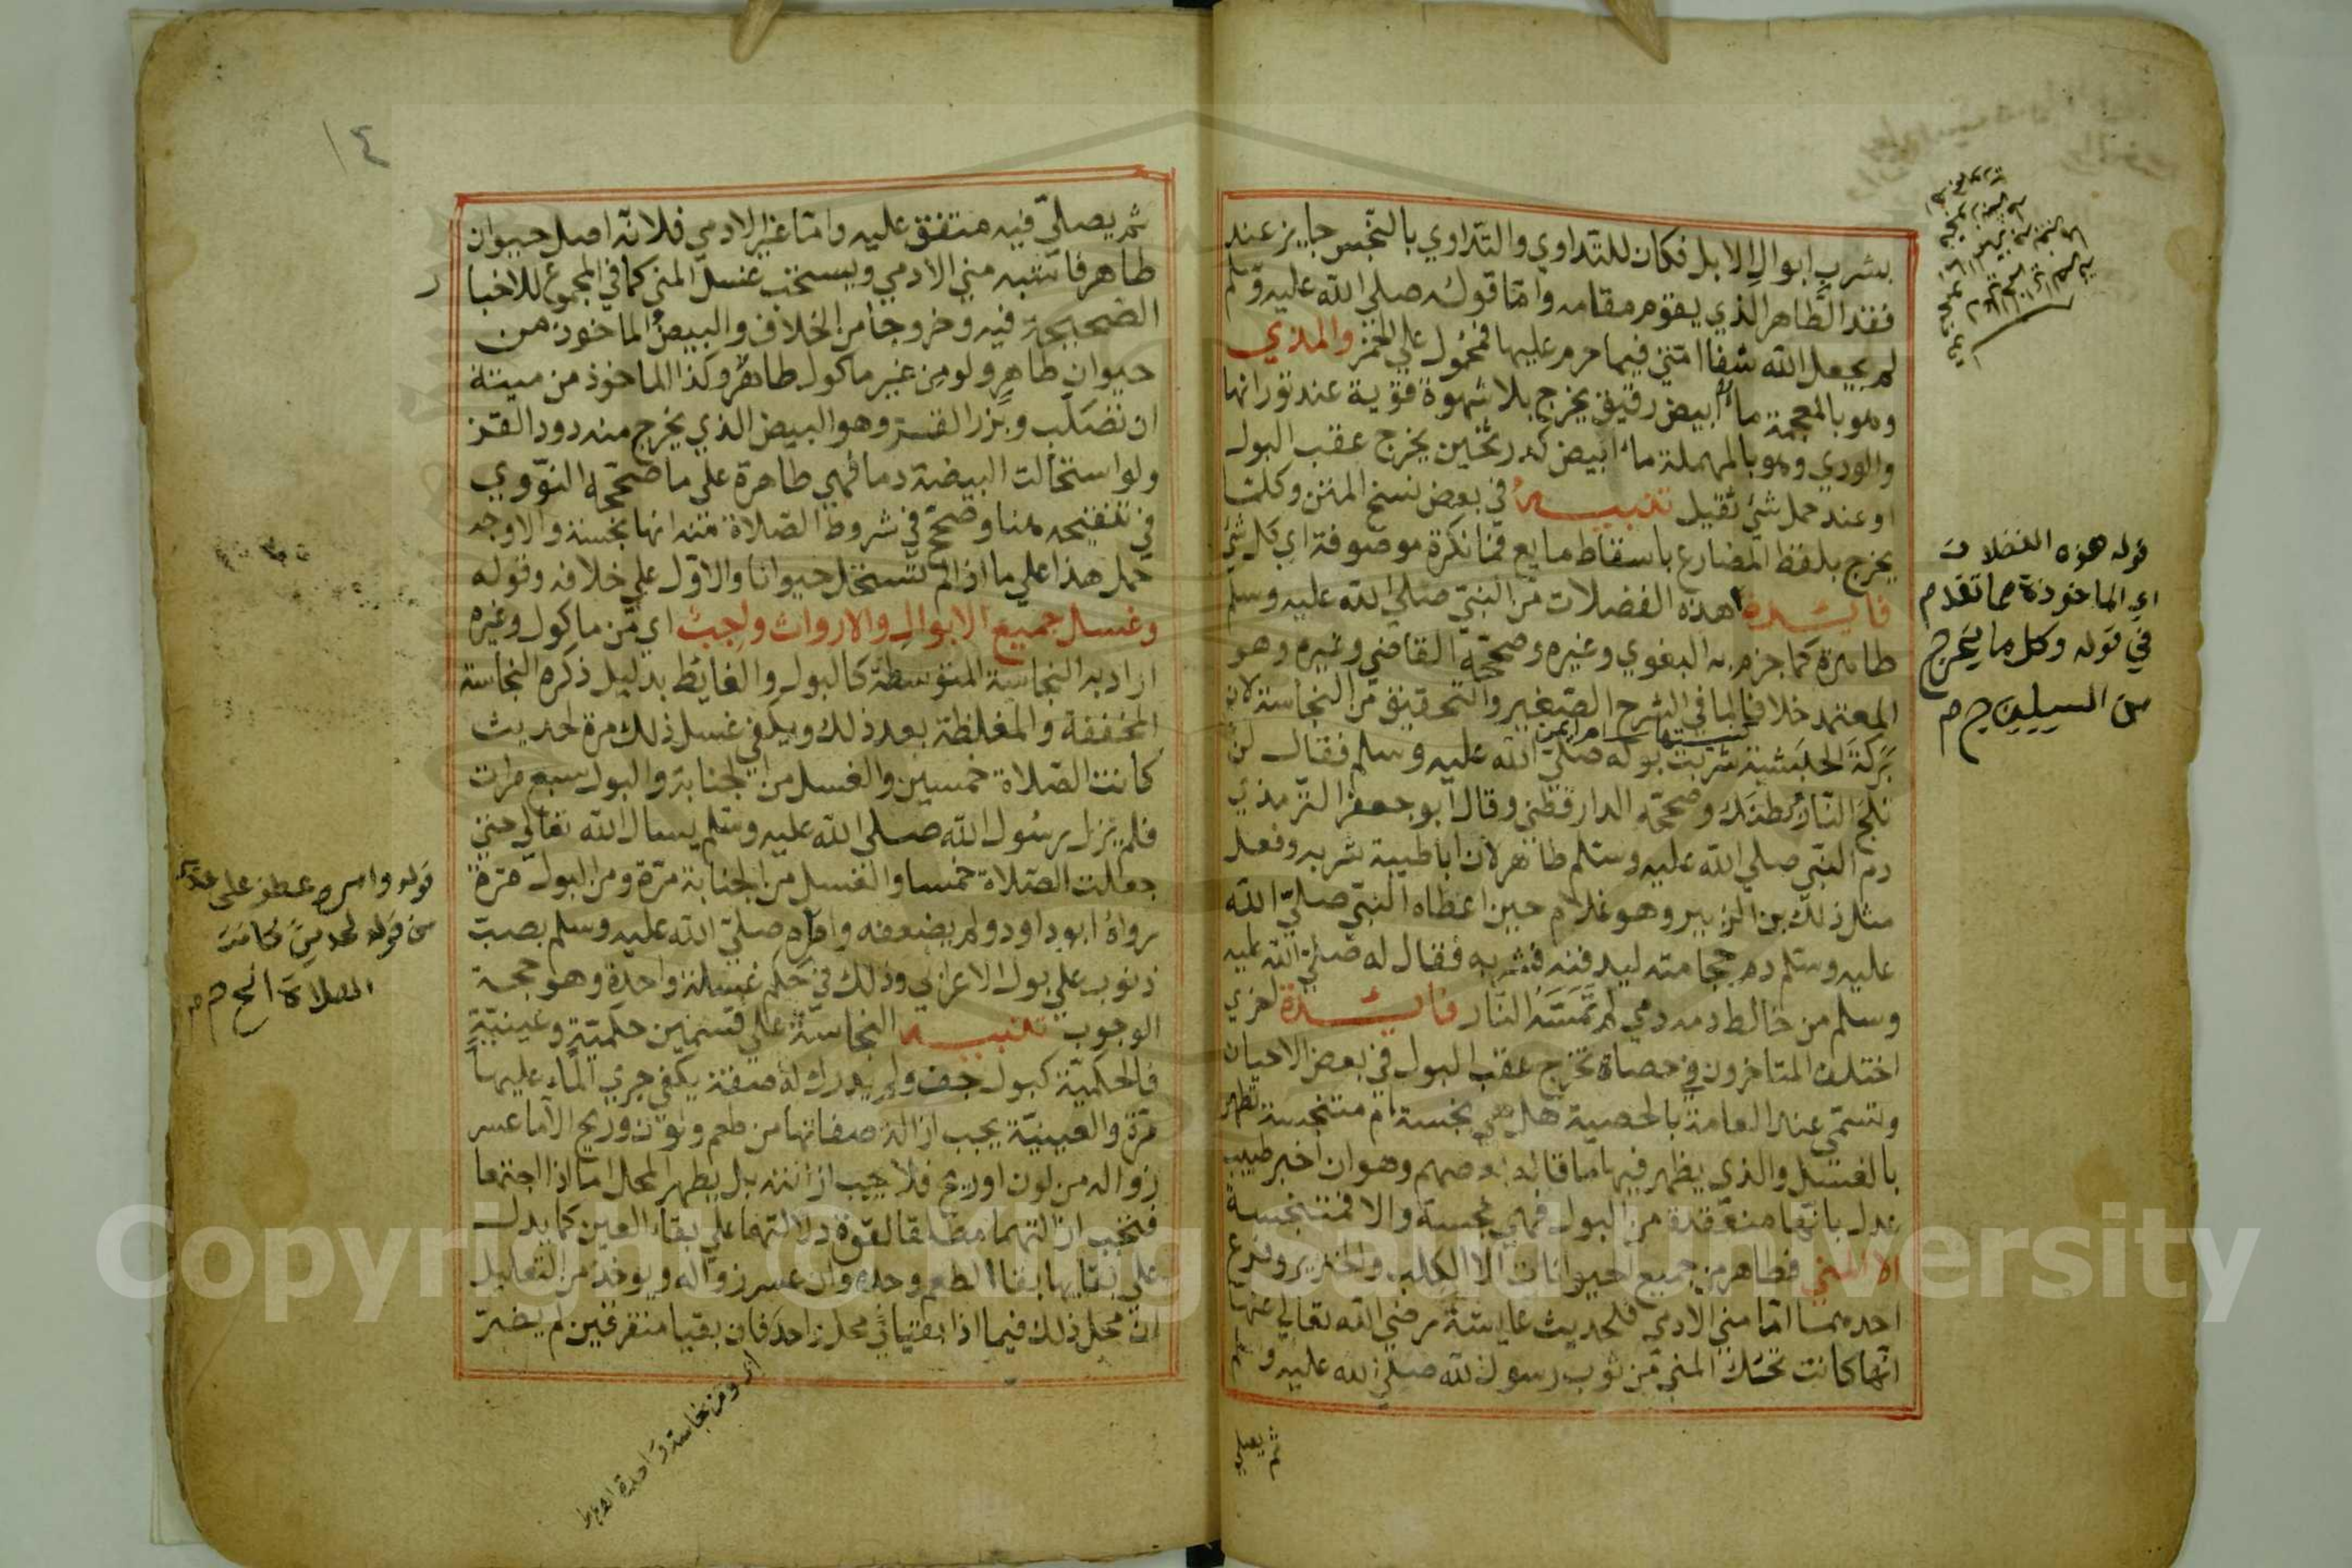 بشرب ابوال الابل فكان للتداوي والتداوي بالنجس جايز عند
فقد الطاهر الذي يقوم مقامه واما قوله صلي الله عليه وسلم
لم يجعل الله شفا امتي فيما حرم عليها فمحمول علي الخمر والمذي
وهو بالمعجمة ماء ابيض رقيق يخرج بلا شهوة قوية عند ثورانها
والودي وهو بالمهملة ماء ابيض كدر ثخين يخرج عقب البول
او عند حمل شئ ثقيل تنبيه في بعض نسخ المتن وكلما
يخرج بلفظ المضارع باسقاط مايع فما نكرة موصوفة اي كل شئ
فايدة هذه الفضلات من النبي صلي الله عليه وسلم
طاهرة كما جزم به البغوي وغيره وصححه القاضي وغيره وهو
المعتمد خلافا لما في الشرح الصغير والتحقيق من النجاسة لان
كنيتها ام ايمن
بركة الحبشية شربت بوله صلي الله عليه وسلم فقال لن
تلج النار بطنك وصححه الدارقطني وقال ابو جعفر الترمذي
دم النبي صلي الله عليه وسلم طاهر لان ابا طيبة شربه وفعل
مثل ذلك بن الزبير وهو غلام حين اعطاه النبي صلي الله
عليه وسلم دم حجامته ليدفنه فشربه فقال له صلي الله عليه
وسلم من خالط دمه دمي لم تمسه النار فايدة اخري
اختلف المتاخرون في حصاة تخرج عقب البول في بعض الاحيان
وتسمي عند العامة بالحصية هل هي نجسة ام متنجسة تطهر
بالغسل والذي يظهر فيها ما قاله بعضهم وهو ان اخبر طبيب
عدل بانها منعقدة من البول فهي نجسة والا فمتنجسة
الا المني فطاهر من جميع الحيوانات الا الكلب والخنزير وفرع
احدهما اما مني الادمي فلحديث عايشة رضي الله تعالي عنها
انها كانت تحك المني من ثوب رسول الله صلي الله عليه وسلم
ثم يصلي
قوله هذه الفضلات
اي الماخوذة مما تقدم
في قوله وكل ما يخرج
من السبيلين
١٤
ثم يصلي فيه متفق عليه واما غير الادمي فلانه اصل حيوان
طاهر فاشبه مني الادمي ويستحب غسل المني كما في المجموع للاخبار
الصحيحة فيه وخروجا من الخلاف والبيض الماخوذ من
حيوان طاهر ولو من غير ماكول طاهر وكذا الماخوذ من ميتة
ان تصلب وبزر القز وهو البيض الذي يخرج منه دود القز
ولو استحالت البيضة دما فهي طاهرة علي ما صححه النووي
في تنقيحه هنا وصحح في شروط الصلاة منه انها نجسة والاوجه
حمل هذا علي ما اذا لم تستحل حيوانا والاول علي خلافه وقوله
وغسل جميع الابوال والارواث واجب اي من ماكول وغيره
اراد به النجاسة المتوسطة كالبول والغايط بدليل ذكره النجاسة
المخففة والمغلظة بعد ذلك ويكفي غسل ذلك مرة لحديث
كانت الصلاة خمسين والغسل من الجنابة والبول سبع مرات
فلم يزل رسول الله صلي الله عليه وسلم يسال الله تعالي حتي
جعلت الصلاة خمسا والغسل من الجنابة مرة ومن البول مرة
رواه ابو داود ولم يضعفه وامره صلي الله عليه وسلم بصب
ذنوب علي بول الاعرابي وذلك في حكم غسلة واحدة وهو حجة
الوجوب تنبيه النجاسة علي قسمين حكمية وعينية
فالحكمية كبول جف ولم يدرك له صفة يكفي جري الماء عليها
مرة والعينية يجب ازالة صفاتها من طعم ولون وريح الا ما عسر
زواله من لون او ريح فلا يجب ازالته بل يطهر المحل اما اذا اجتمعا
فتجب ازالتهما مطلقا لقوة دلالتهما علي بقاء العين كما يدل
علي بقايها بقاء الطعم وحده وان عسر زواله ويوخذ من التعليل
ان محل ذلك فيما اذا بقيا في محل واحد فان بقيا متفرقين لم يضر
قوله وامره عطف على
من قوله لحديث كانت
الصلاة الخ
اي ومن نجاسة واحدة